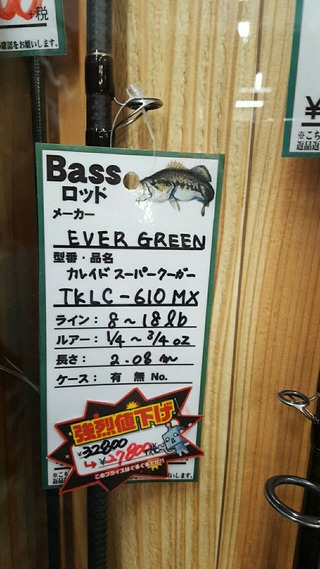 +税
確認をお願いします。
Bass
ロッド
メーカー
EVER GREEN
型番・品名
カレイド スーパークーガー
TKLC-610MX
ライン: 8～18lb
ルアー: 1/4～3/4oz
長さ: 2.08m
ケース: 有 無 No.
強烈値下げ
¥32800
↳ ¥27800
このプライスはぐるぐるだけ!!
¥
※こち
返品返